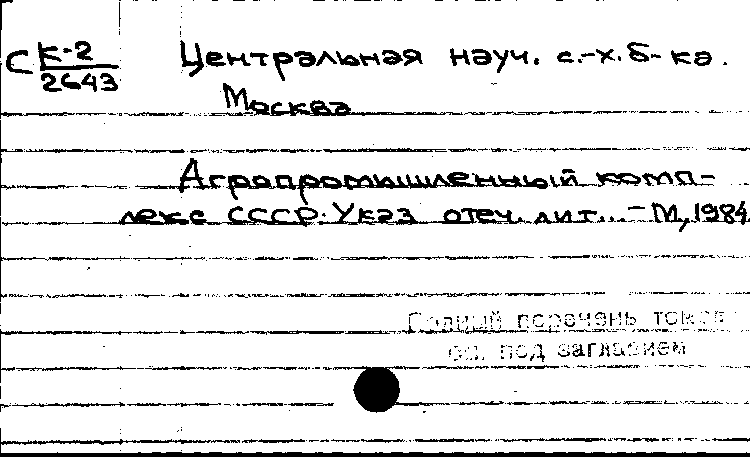 С К-2 Центральная науч. с.-х. б-ка.
2643
Москва
Агропромышленный комп-
лекс СССР. Указ отеч. лит... - М, 1984
Полный перечень томов
см. под заглавием